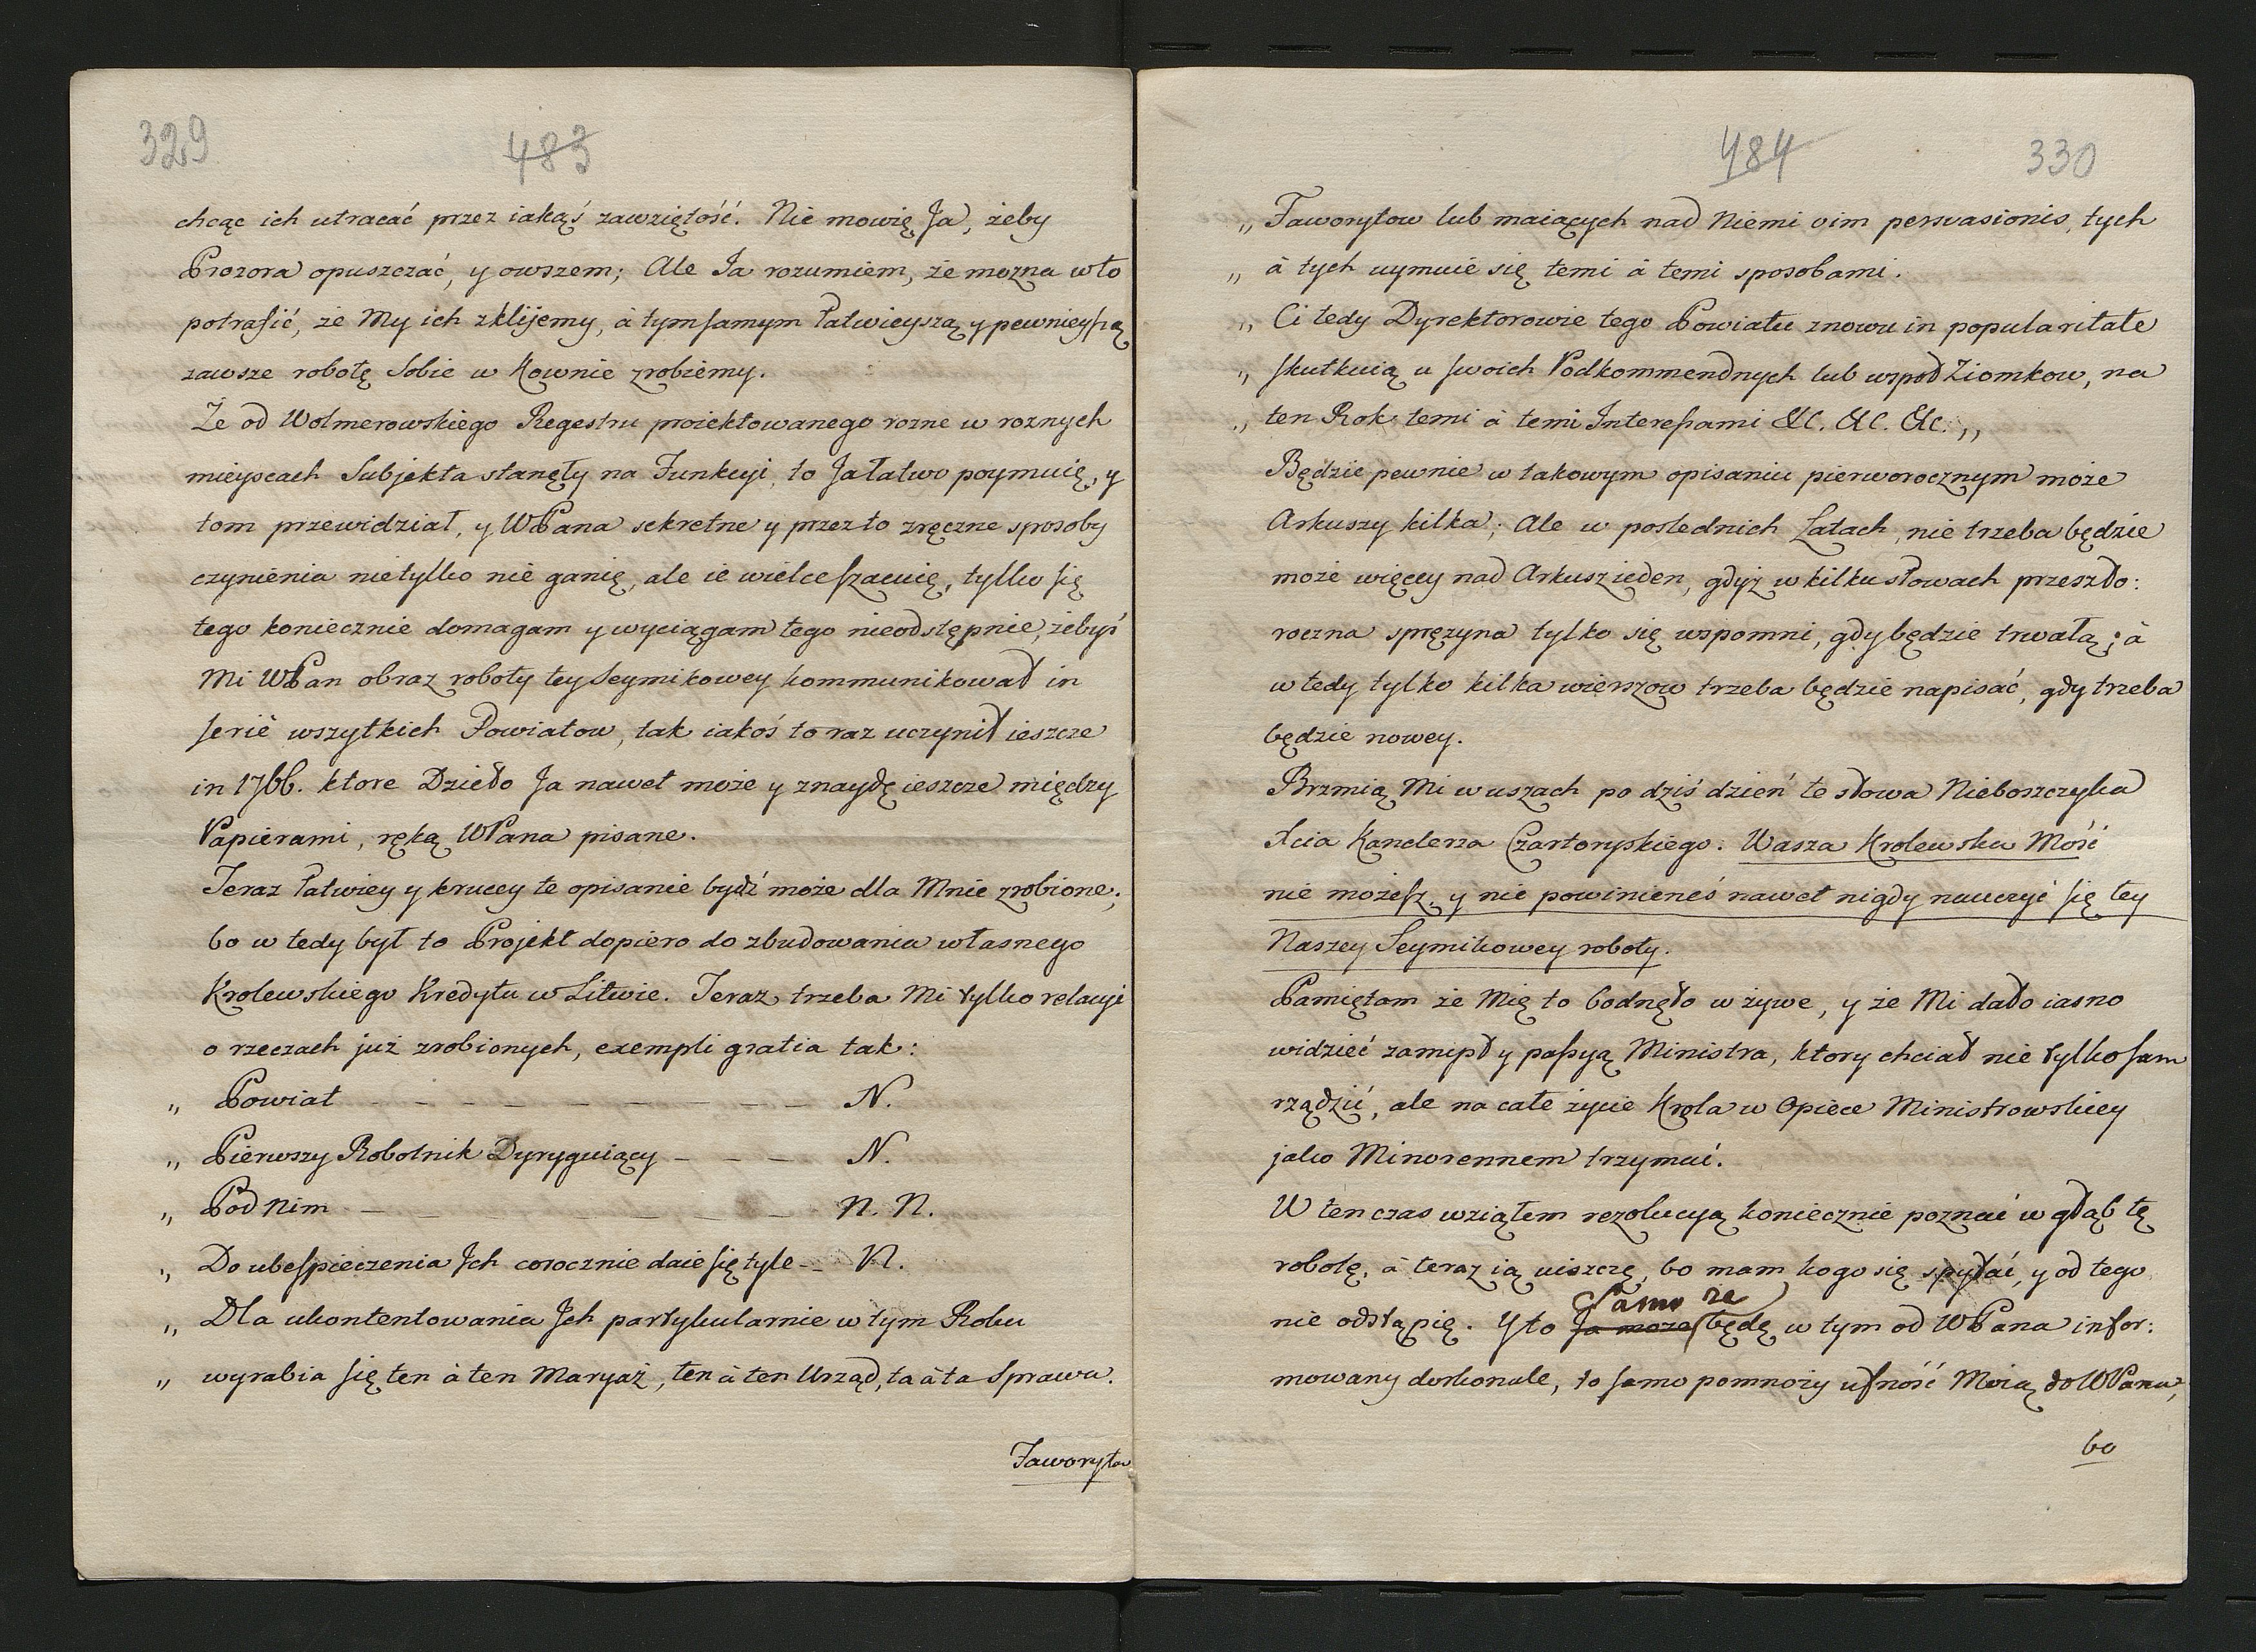 329
483
chcąc ich utracać przez iakąś zawziętość. Nie mowię Ja, żeby
Prozora opuszczać, y owszem; Ale Ja rozumiem, że mozna w to
potrafić, że My ich zklijemy, à tym samym łatwieyszą y pewnieyszą
zawsze robotę Sobie w Kownie zrobiemy.
Że od Wolmerowskiego Regestru proiektowanego rozne w roznych
mieyscach Subjekta stanęły na Funkcyi, to Ja łatwo poymuię, y
tom przewidział, y WPana sekretne y przez to zręczne sposoby
czynienia nietylko nie ganię, ale ie wielce szacuię, tylko się
tego koniecznie domagam y wyciągam tego nieodstępnie, żebyś
Mi WPan obraz roboty tey Seymikowey kommunikował in
serie wszytkich Powiatow, tak iakoś to raz uczynił ieszcze
in 1766. ktore Dzieło Ja nawet może y znaydę ieszcze między
Papierami, ręką WPana pisane.
Teraz łatwiey y krucey te opisanie bydź może dla Mnie zrobione;
bo w tedy był to Projekt dopiero do zbudowania własnego
Krolewskiego Kredytu w Litwie. Teraz trzeba Mi tylko relacyi
o rzeczach już zrobionych, exempli gratia tak:
„ Powiat — — — — — — — — — N.
„ Pierwszy Robotnik Dyryguiący — — — N.
„ Pod Nim — — — — — — — — N. N.
„ Do ubespieczenia Jch corocznie daie się tyle — N.
„ Dla ukontentowania Jch partykularnie w tym Roku
„ wyrabia się ten à ten Maryaż, ten à ten Urząd, ta à ta Sprawa.
Faworytow
484
330
„ Faworytow lub maiących nad Niemi vim persvasionis, tych
„ à tych uymuie się temi à temi sposobami.
„ Ci tedy Dyrektorowie tego Powiatu znowu in popularitate
„ skutkuią u swoich Podkommendnych lub wspoł Ziomkow, na
„ ten Rok temi à temi Interessami &c. &c. &c. „
Będzie pewnie w takowym opisaniu pierworocznym może
Arkuszy kilka; Ale w poslednich Latach, nie trzeba będzie
może więcey nad Arkusz ieden, gdyż w kilku słowach przeszło:
roczna sprężyna tylko się wspomni, gdy będzie trwałą; à
w tedy tylko kilka wierszow trzeba będzie napisać, gdy trzeba
będzie nowey.
Brzmią Mi w uszach po dziś dzień te słowa Nieboszczyka
Xcia Kanclerza Czartoryskiego: Wasza Krolewska Mość
nie możesz, y nie powinieneś nawet nigdy nauczyć się tey
Naszey Seymikowey roboty.
Pamiętam że Mię to bodnęło w żywe, y że Mi dało iasno
widzieć zamysł y passyą Ministra, ktory chciał nie tylko sam
rządzić, ale na całe życie Krola w Opiece Ministrowskiey
jako Minorennem trzymać.
W ten czas wziąłem rezolucyą koniecznie poznać w głąb tę
robotę, à teraz ią uiszczę, bo mam kogo się spytać, y od tego
nie odstąpię. Y to Ja moze samo że będę w tym od WPana infor:
mowany doskonale, to samo pomnoży ufność Moią do WPana,
bo